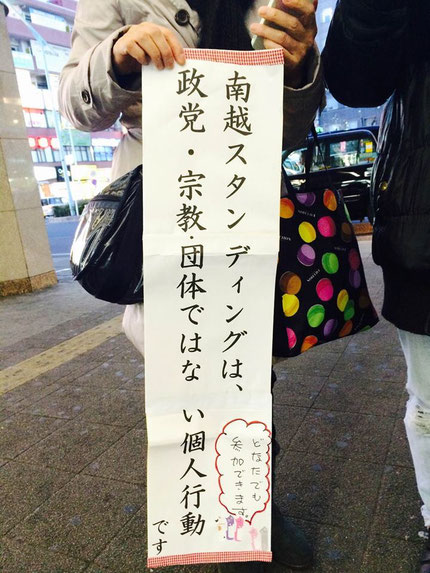 南越スタンディングは、
政党・宗教・団体ではない個人行動
です
どなたでも
参加できます。